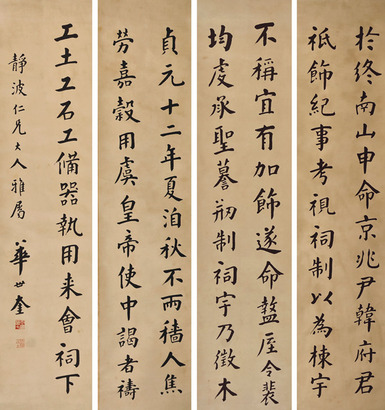 於終南山申命京兆尹韓府君
祗飾紀事考視祠制以為棟宇
不稱宜有加飾遂命盩厔令裴
均虔承聖謩刱制祠宇乃徵木
貞元十二年夏洎秋不雨穡人焦
勞嘉穀用虞皇帝使中謁者禱
工土工石工備器執用来會祠下
靜波仁兄大人雅屬
華世奎